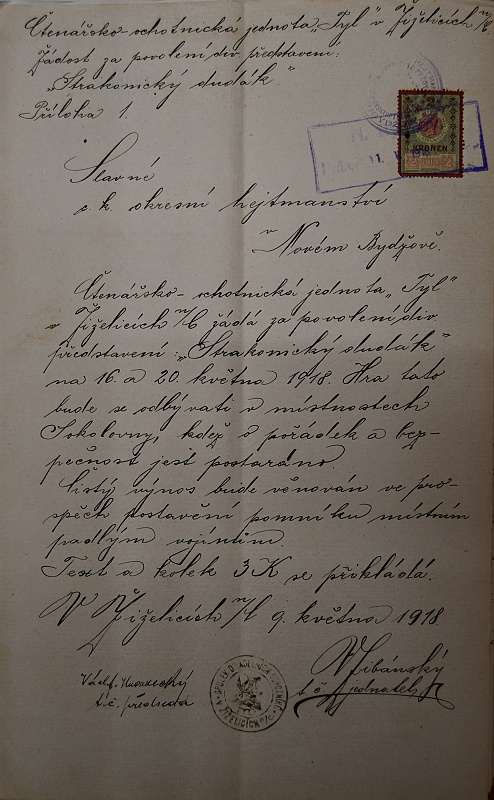 Čtenářsko-ochotnická jednota „Tyl“ v Žiželicích n/C
Žádost za povolení div. představení:
„Strakonický dudák.“
Příloha 1.
KRONEN
Slavné
c. k. okresní hejtmanství
v
Novém Bydžově.
Čtenářsko-ochotnická jednota „Tyl“
v Žiželicích n/C žádá za povolení div.
představení: „Strakonický dudák“
na 16. a 20. května 1918. Hra tato
bude se odbývati v místnostech
Sokolovny, kdež o pořádek a bez-
pečnost jest postaráno.
Čistý výnos bude věnován ve pro-
spěch postavení pomníku místním
padlým vojínům.
Text a kolek 3 K se přikládá.
V Žiželicích n/C 9. května 1918.
t. č. předseda
t. č. jednatel